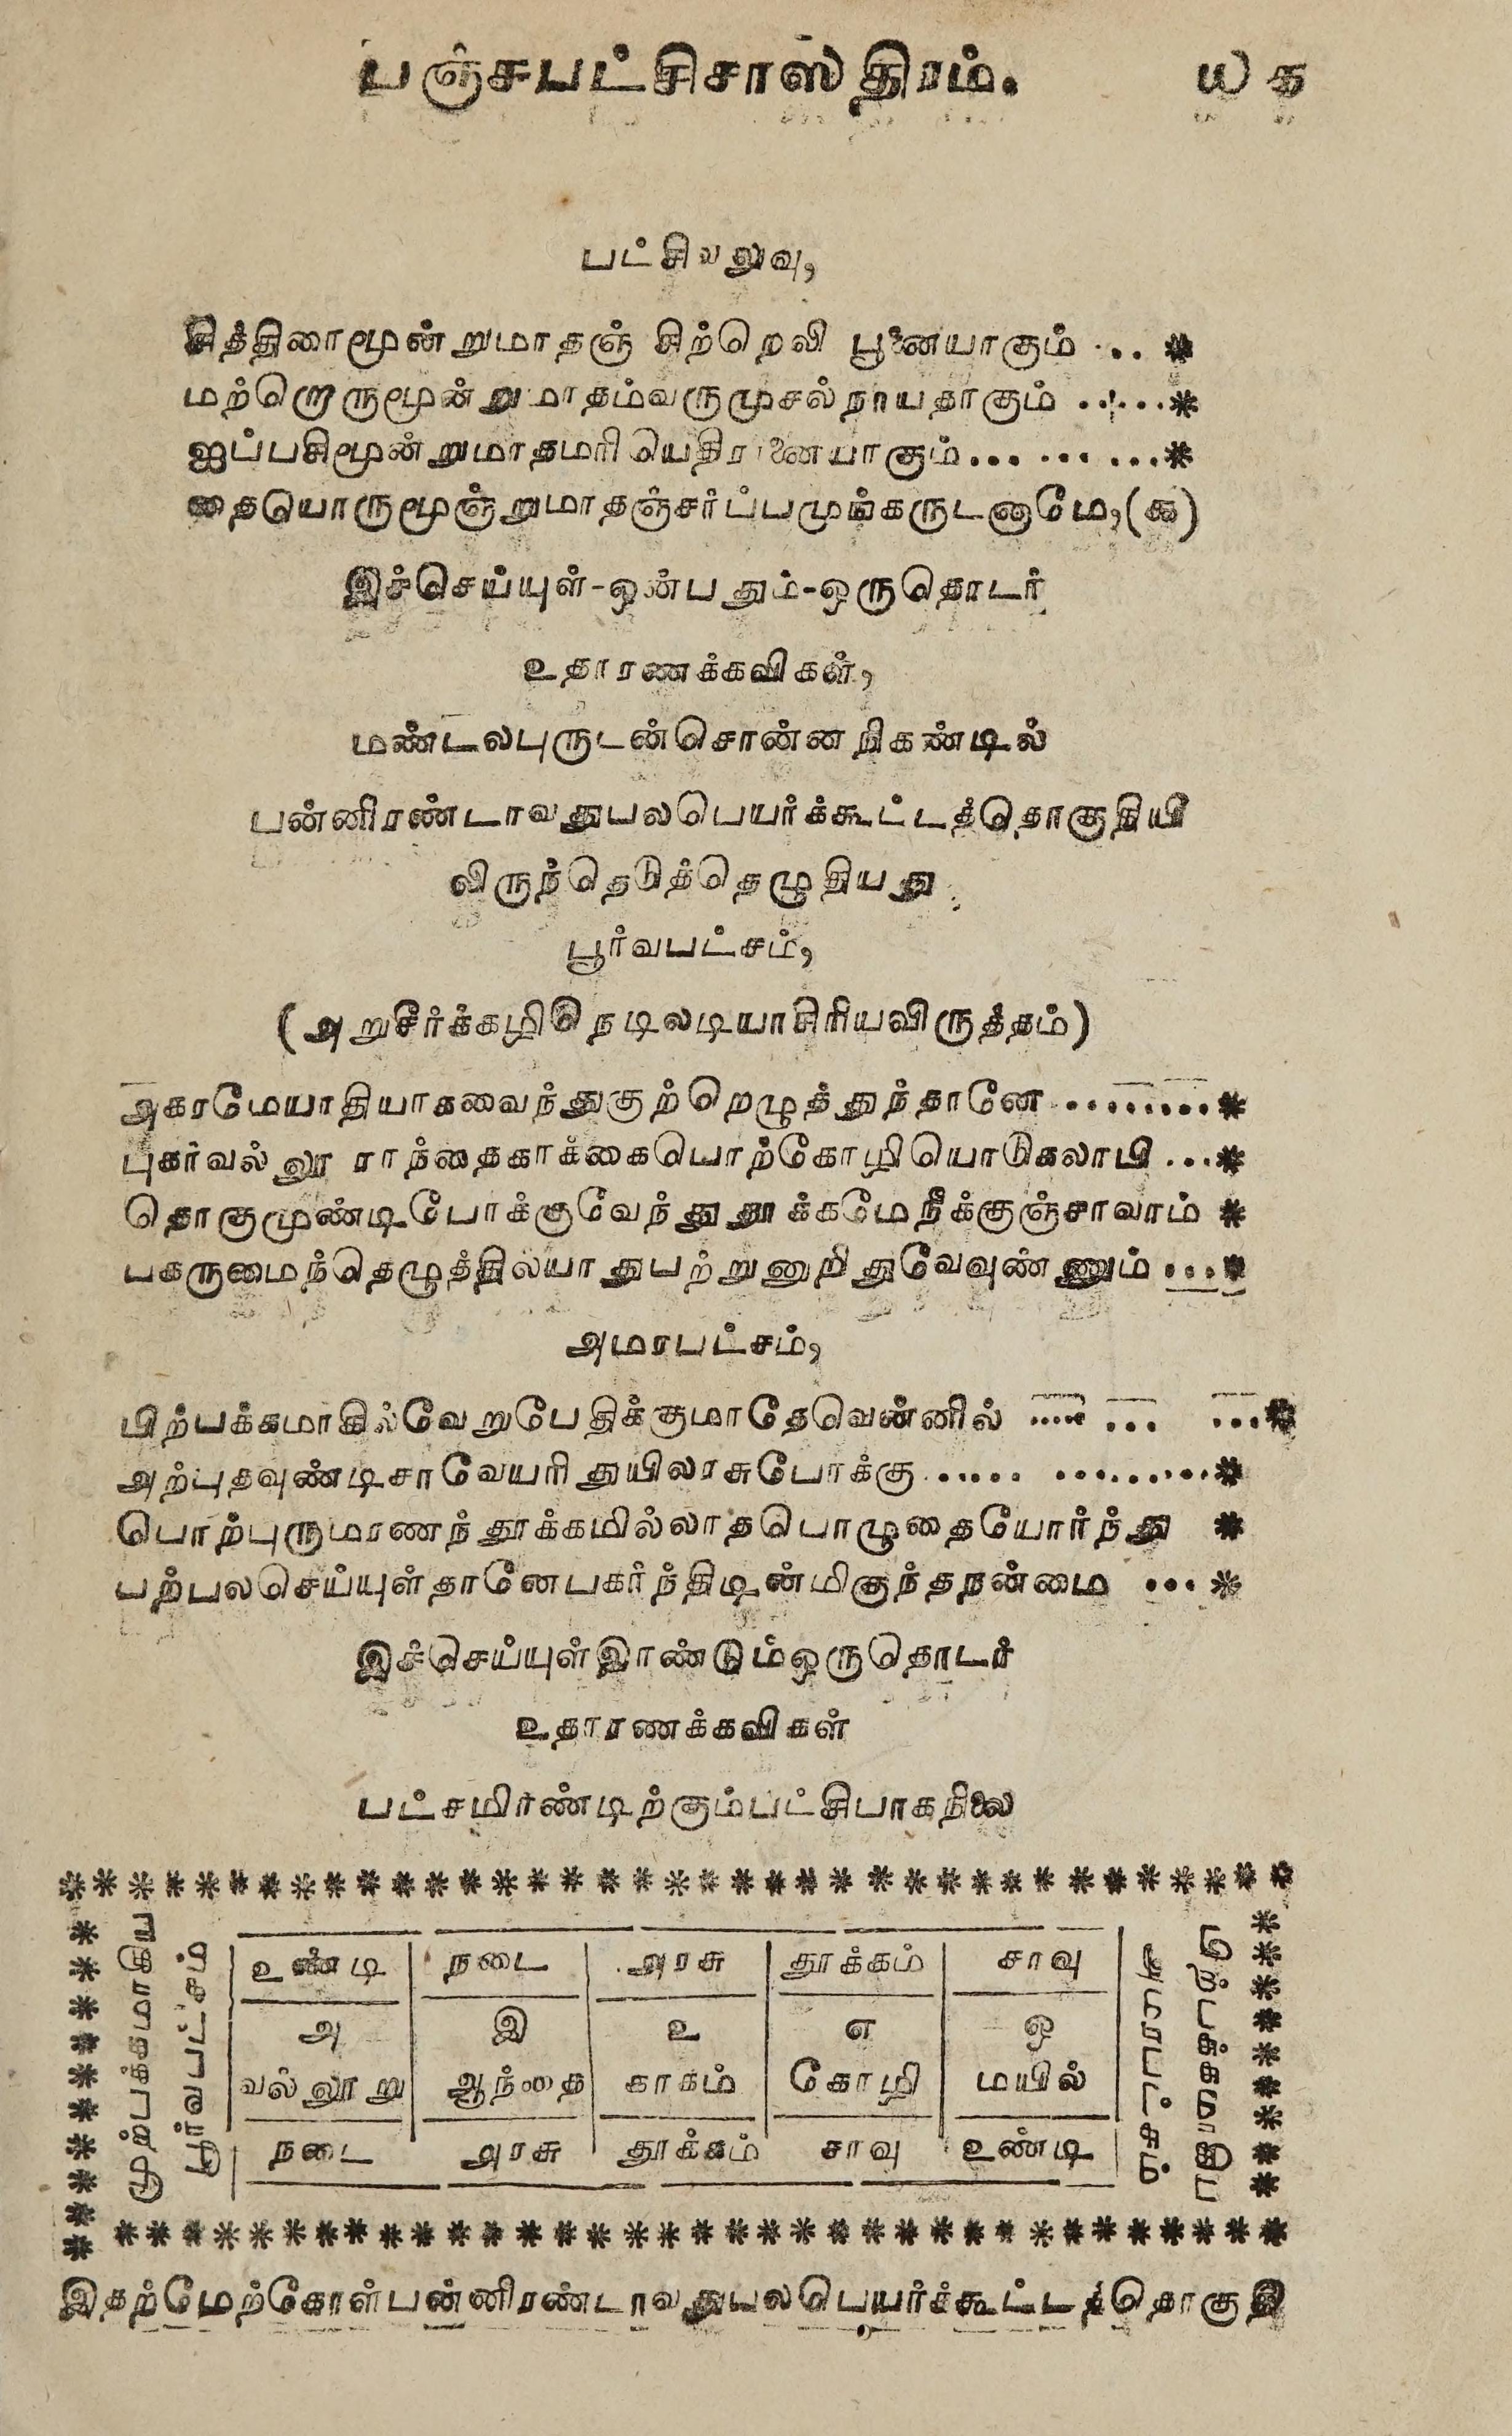 பஞ்சபட்சிசாஸ்திரம். ௰௧
பட்சிவலுவு,
சித்திரைமூன்றுமாதஞ் சிற்றெலி பூனையாகும் ... *
மற்றொருமூன்றுமாதம்வருமுசல்நாயதாகும் ......*
ஐப்பசிமூன்றுமாதமரியெதிரானையாகும்... ... ...*
தையொருமூஞ்றுமாதஞ்சர்ப்பமுங்கருடனாமே,(௯)
இச்செய்யுள்-ஒன்பதும்-ஒருதொடர்
உதாரணக்கவிகள்,
மண்டலபுருடன்சொன்னநிகண்டில்
பன்னிரண்டாவதுபலபெயர்க்கூட்டத்தொகுதியி
லிருந்தெடுத்தெழுதியது
பூர்வபட்சம்,
(அறுசீர்க்கழிநெடிலடியாசிரியவிருத்தம்)
அகரமேயாதியாகவைந்துகுற்றெழுத்துந்தானே .........*
புகர்வல்லூ ராந்தைகாக்கையொற்கோழியொடுகலாபி ...*
தொகுமுண்டிபோக்குவேந்துதூக்கமேநீக்குஞ்சாவாம் *
பகருமைந்தெழுத்தில்யாதுபற்றுனுறிதுவேவுண்ணும் ...*
அமரபட்சம்,
பிற்பக்கமாகில்வேறுபேதிக்குமாதேவென்னில் ..... ... ...*
அற்புதவுண்டிசாவேயரிதுயிலரசுபோக்கு ..... .........*
பொற்புருமரணந்தூக்கமில்லாதபொழுதையோர்ந்து *
பற்பலசெய்யுள்தானேபகர்ந்திடின்மிகுந்தநன்மை ...*
இச்செய்யுள்இரண்டும்ஒருதொடர்
உதாரணக்கவிகள்
பட்சமிரண்டிற்கும்பட்சிபாகநிலை
முற்பக்கமாகிய
பூர்வபட்சம்
உண்டி நடை அரசு தூக்கம் சாவு
அ இ உ எ ஒ
வல்லூறு ஆந்தை காகம் கோழி மயில்
நடை அரசு தூக்கம் சாவு உண்டி
இதற்மேற்கோள்பன்னிரண்டாவதுபலபெயர்க்கூட்டத்தொகுதி